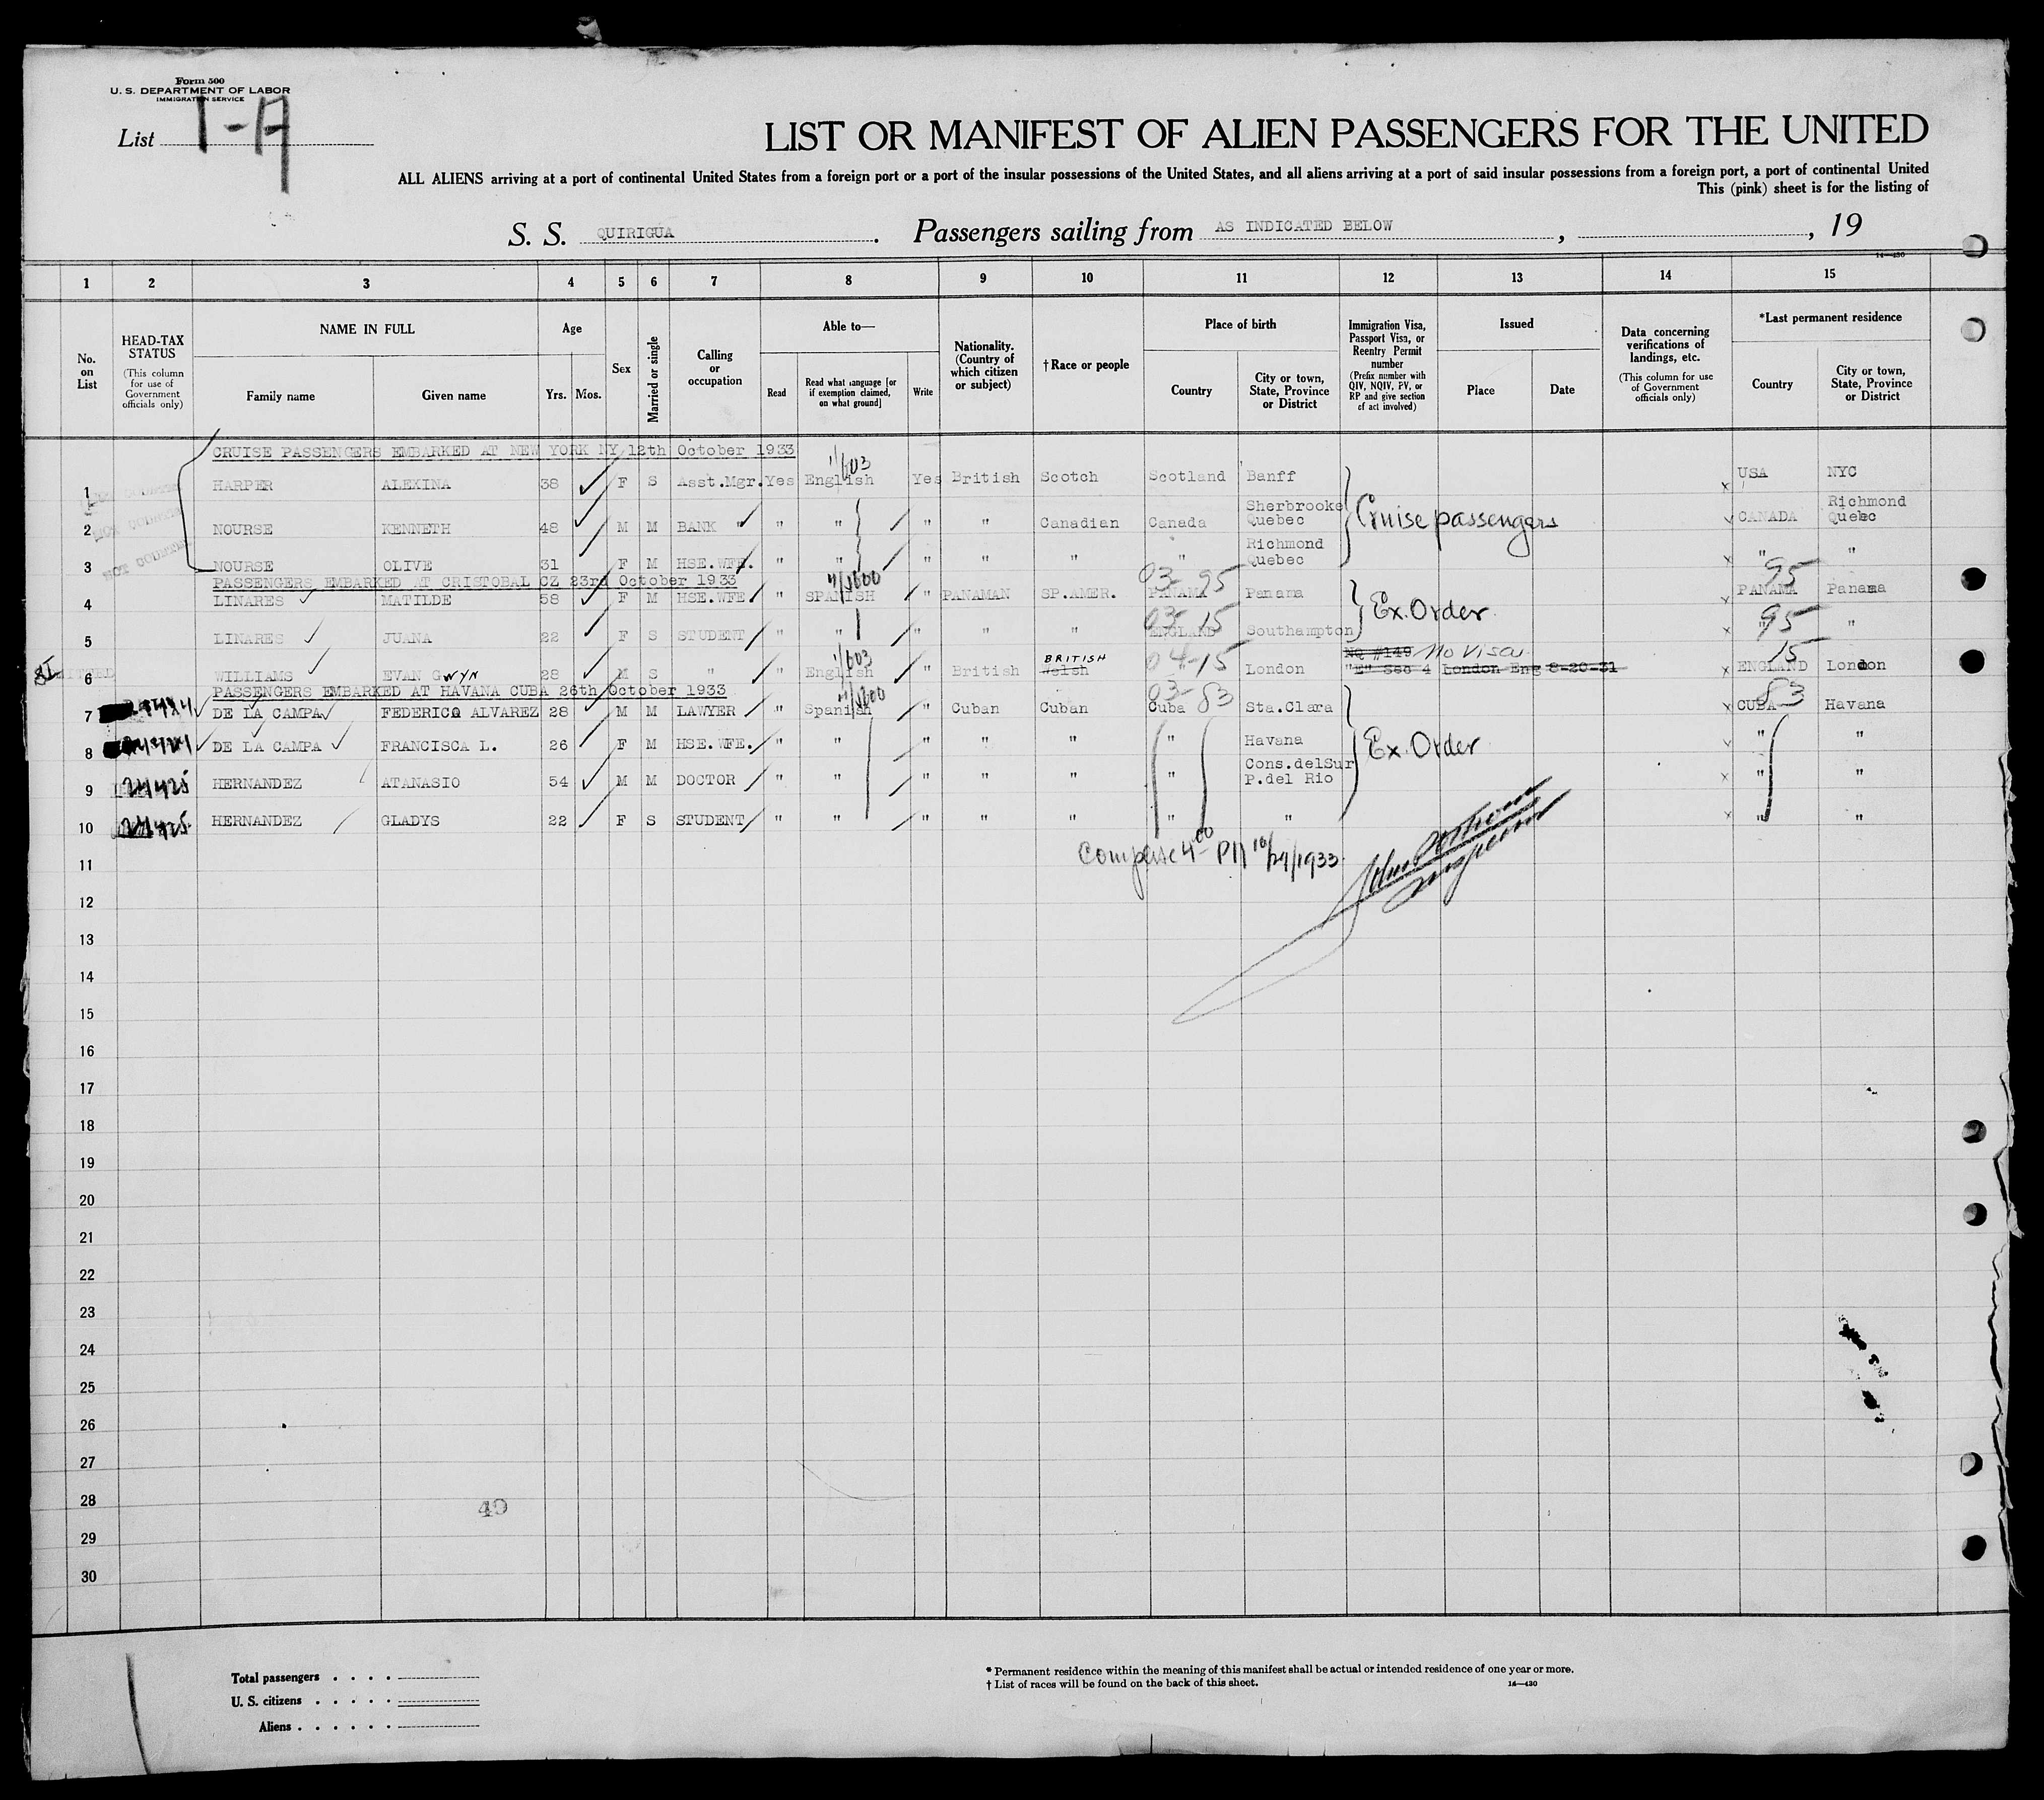 Form 500
U. S. DEPARTMENT OF LABOR
IMMIGRATION SERVICE
List 1-A
LIST OR MANIFEST OF ALIEN PASSENGERS FOR THE UNITED
ALL ALIENS arriving at a port of continental United States from a foreign port or a port of the insular possessions of the United States, and all aliens arriving at a port of said insular possessions from a foreign port, a port of continental United
This (pink) sheet is for the listing of
S. S. QUIRIGUA. Passengers sailing from AS INDICATED BELOW, , 19
14—430
1 2 3 4 5 6 7 8 9 10 11 12 13 14 15
No. on List
HEAD-TAX STATUS (This column for use of Government officials only)
NAME IN FULL Family name Given name
Age Yrs. Mos.
Sex
Married or single
Calling or occupation
Able to— Read Read what language [or if exemption claimed, on what ground] Write
Nationality. (Country of which citizen or subject)
† Race or people
Place of birth Country City or town, State, Province or District
Immigration Visa, Passport Visa, or Reentry Permit number (Prefix number with QIV, NQIV, PV, or RP and give section of act involved)
Issued Place Date
Data concerning verifications of landings, etc. (This column for use of Government officials only)
*Last permanent residence Country City or town, State, Province or District
CRUISE PASSENGERS EMBARKED AT NEW YORK NY 12th October 1933
1 HARPER ALEXINA 38 F S Asst.Mgr. Yes English Yes British Scotch Scotland Banff USA NYC
2 NOURSE KENNETH 48 M M BANK " " " " " Canadian Canada Sherbrooke Quebec Cruise passengers CANADA Richmond Quebec
3 NOURSE OLIVE 31 F M HSE.WFE. " " " " " " Richmond Quebec " "
PASSENGERS EMBARKED AT CRISTOBAL CZ 23rd October 1933
4 LINARES MATILDE 58 F M HSE.WFE. " SPANISH " PANAMAN SP.AMER. PANAMA 03-95 Panama Ex. Order PANAMA 95 Panama
5 LINARES JUANA 22 F S STUDENT " " " " " ENGLAND 03-15 Southampton " 95 "
6 WILLIAMS EVAN GWYN 28 M S " " English 1/603 " British Welsh BRITISH 04-15 London NQ #149 "E" Sec 4 No Visa London Eng 8-20-31 ENGLAND 15 London
PASSENGERS EMBARKED AT HAVANA CUBA 26th October 1933
7 DE LA CAMPA FEDERICO ALVAREZ 28 M M LAWYER " Spanish " Cuban Cuban Cuba 03-83 Sta.Clara CUBA 83 Havana
8 DE LA CAMPA FRANCISCA L. 26 F M HSE.WFE. " " " " " " Havana Ex. Order " "
9 HERNANDEZ ATANASIO 54 M M DOCTOR " " " " " " Cons.delSur P.del Rio " "
10 HERNANDEZ GLADYS 22 F S STUDENT " " " " " " " " "
11
12
13
14
15
16
17
18
19
20
21
22
23
24
25
26
27
28
29
30
49
Total passengers
U. S. citizens
Aliens
* Permanent residence within the meaning of this manifest shall be actual or intended residence of one year or more.
† List of races will be found on the back of this sheet.
14—430